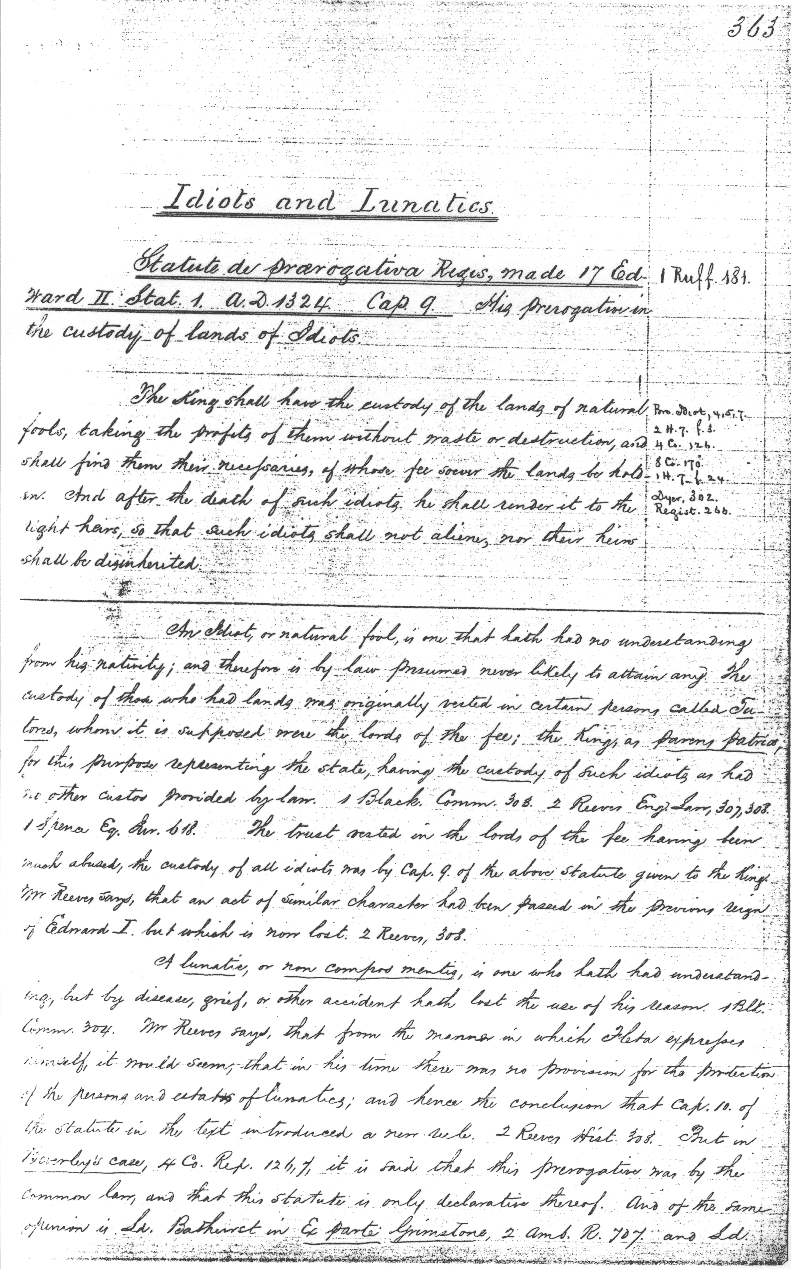 363
Idiots and Lunatics.
Statute de Prærogativa Regis, made 17 Ed-
ward II. Stat. 1. A.D. 1324 Cap. 9. His prerogative in
the custody of lands of Idiots.
1 Ruff. 181.
The King shall have the custody of the lands of natural
fools, taking the profits of them without waste or destruction, and
shall find them their necessaries, of whose fee soever the lands be hold-
en. And after the death of such idiots he shall render it to the
right heirs, so that such idiots shall not aliene, nor their heirs
shall be disinherited.
Bro. Idiot, 4, 5, 7.
2 H. 7. f. 3.
4 Co. 126.
8 Co. 170.
1 H. 7. f. 24.
Dyer, 302.
Regist. 266.
An Idiot, or natural fool, is one that hath had no understanding
from his nativity; and therefore is by law presumed never likely to attain any. The
custody of those who had lands was originally vested in certain persons called Tu-
tores, whom it is supposed were the lords of the fee; the King, as parens patriæ,
for this purpose representing the state, having the custody of such idiots as had
no other custos provided by law. 1 Black. Comm. 303. 2 Reeves Eng. Law, 307, 308.
1 Spence Eq. Jur. 618. The trust vested in the lords of the fee having been
much abused, the custody of all idiots was by Cap. 9. of the above Statute given to the King.
Mr Reeves says, that an act of similar character had been passed in the previous reign
of Edward I. but which is now lost. 2 Reeves, 308.
A lunatic, or non compos mentis, is one who hath had understand-
ing, but by disease, grief, or other accident hath lost the use of his reason. 1 Blk.
Comm. 304. Mr Reeves says, that from the manner in which Fleta expresses
himself, it would seem, that in his time there was no provision for the protection
of the persons and estates of lunatics; and hence the conclusion that Cap. 10. of
the statute in the text introduced a new rule. 2 Reeves Hist. 308. But in
Beverley's case, 4 Co. Rep. 126, 7, it is said that this prerogative was by the
common law, and that this statute is only declarative thereof. And of the same
opinion is Ld. Bathurst in Ex parte Grimstone, 2 Amb. R. 707. and Ld.